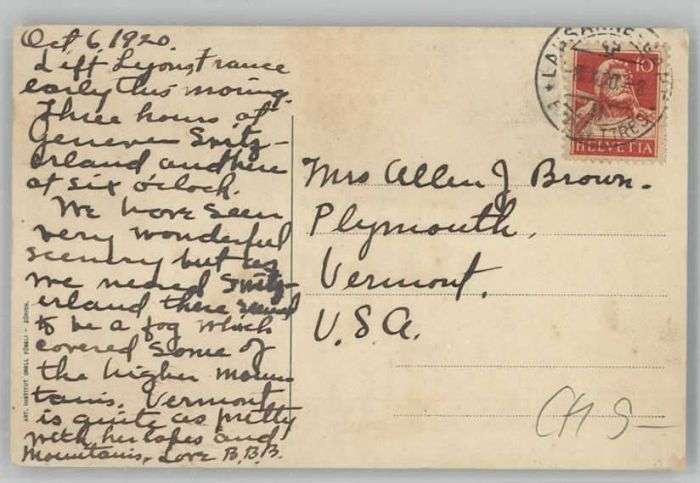 Oct 6, 1920.
Left Lyons, France
early this morning.
Three hours at
Geneva Switz-
erland and here
at six o'clock.
We have seen
very wonderful
scenery but as
we neared Switz-
erland there seemed
to be a fog which
covered some of
the higher moun-
tains. Vermont
is quite as pretty
with her lakes and
Mountains. Love B.B.B.
Mrs Allen J Brown.
Plymouth,
Vermont.
U.S.A.
10
HELVETIA
ART. INSTITUT ORELL FÜSSLI - ZÜRICH.